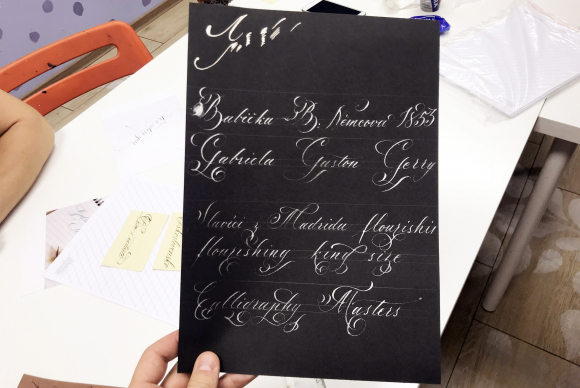 Babička B. Němcová 1853
Gabriela Gaston Gerry
Slavíci z Madridu flourishin
flourishing king size
Calligraphy Masters